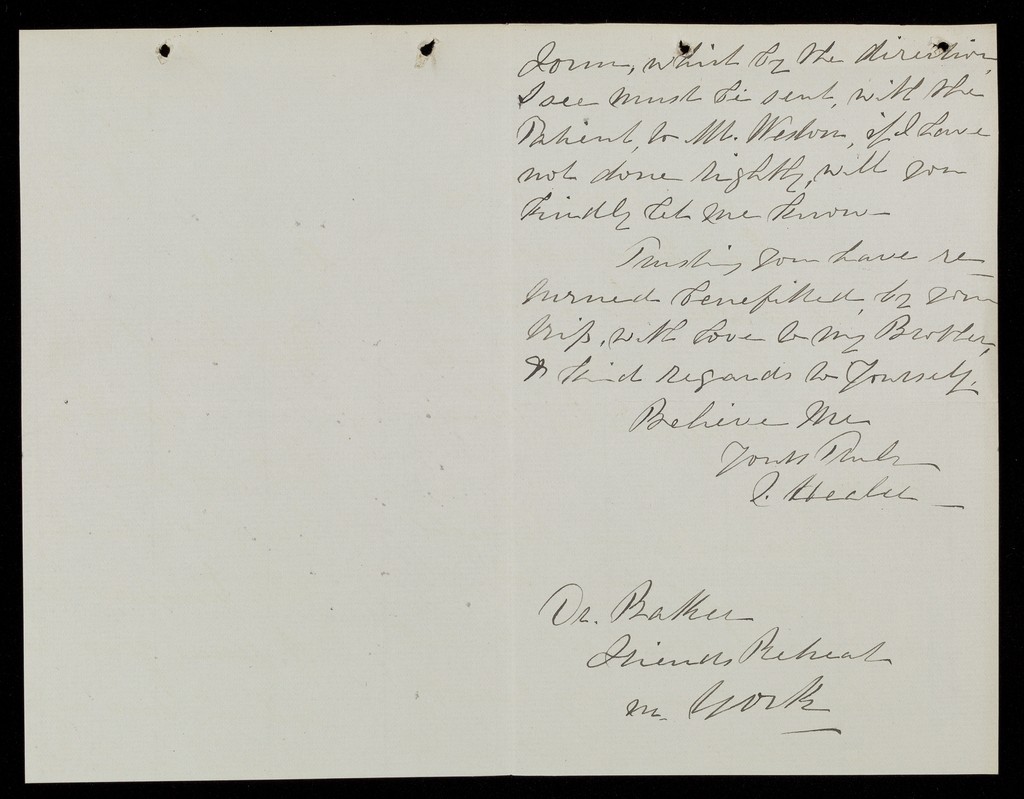 Form, which by the direction
I see must be sent, with the
Patient, to Mr. Weston, if I have
not done rightly, will you
kindly let me know—
Trusting you have re-
turned benefitted, by your
trip, with love to my Brother,
& kind regards to Yourself,
Believe Me
Yours Truly
Dr. Baker
Friends Retreat
nr. York